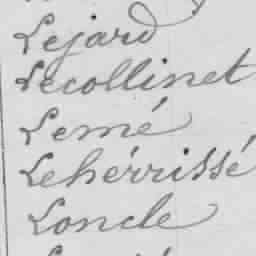 Lejard
Lecollinet
Lemé
Lehérrissé
Loncle